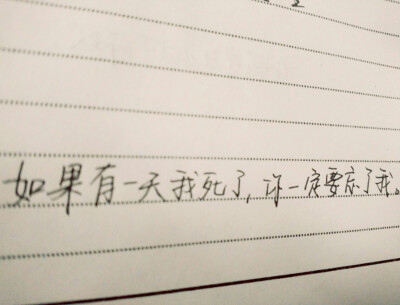 如果有一天我死了，你一定要忘了我。